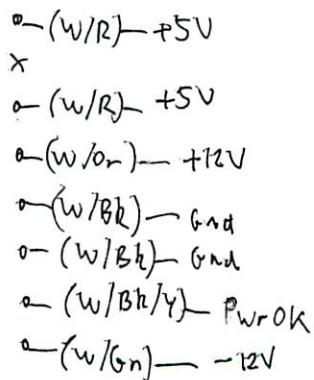 (W/R) +5V
X
(W/R) +5V
(W/Or) +12V
(W/Bk) Gnd
(W/Bk) Gnd
(W/Bk/Y) PwrOK
(W/Gn) -12V